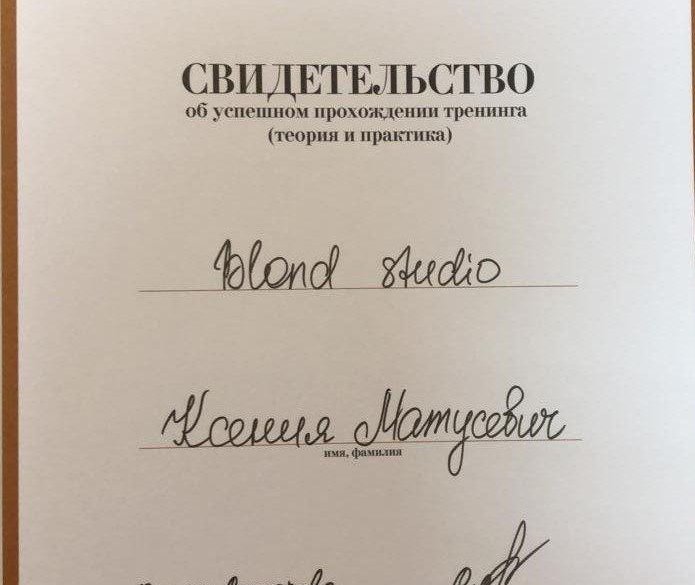 СВИДЕТЕЛЬСТВО
об успешном прохождении тренинга
(теория и практика)
blond studio
Ксения Матусевич
имя, фамилия